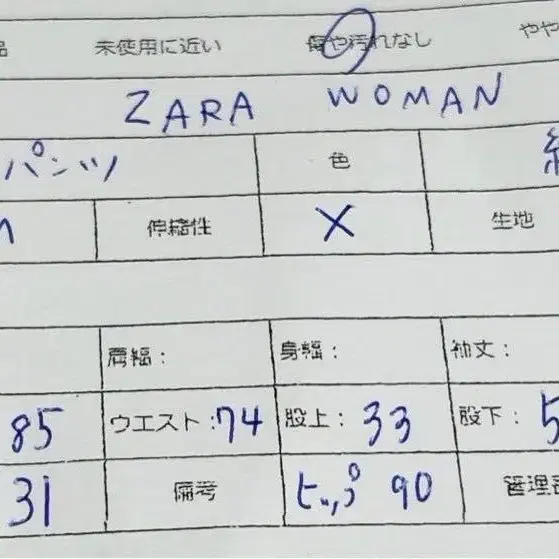 未使用に近い 傷や汚れなし やや
ZARA WOMAN
パンツ 色
伸縮性 × 生地
肩幅: 身幅: 袖丈:
85 ウエスト:74 股上:33 股下:5
31 備考 ヒップ 90 管理